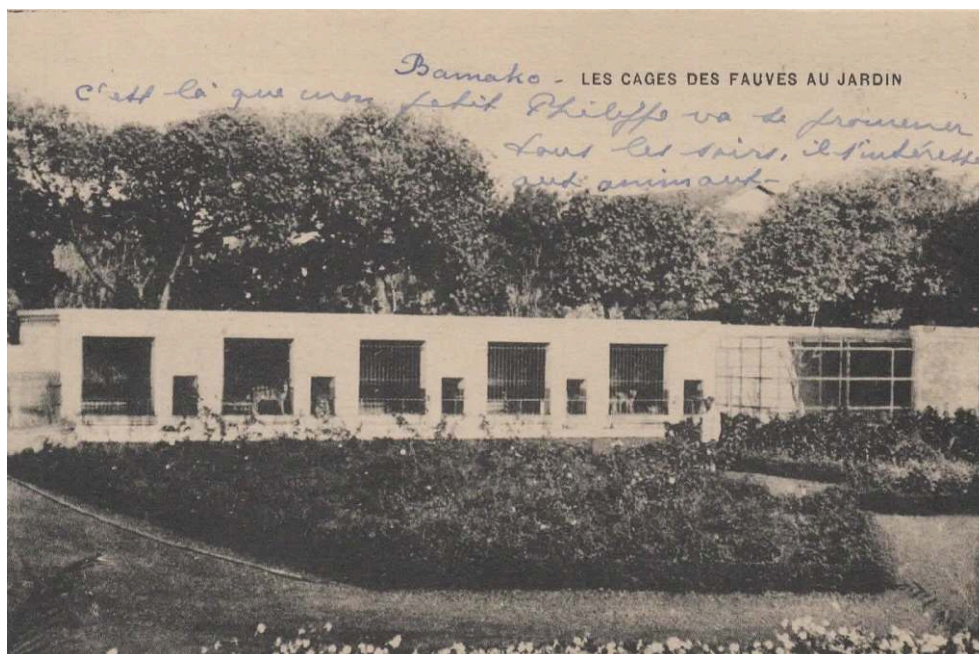 Bamako - LES CAGES DES FAUVES AU JARDIN
c'est là que mon petit Philippe va se promener
tous les soirs, il s'intéresse
aux animaux -